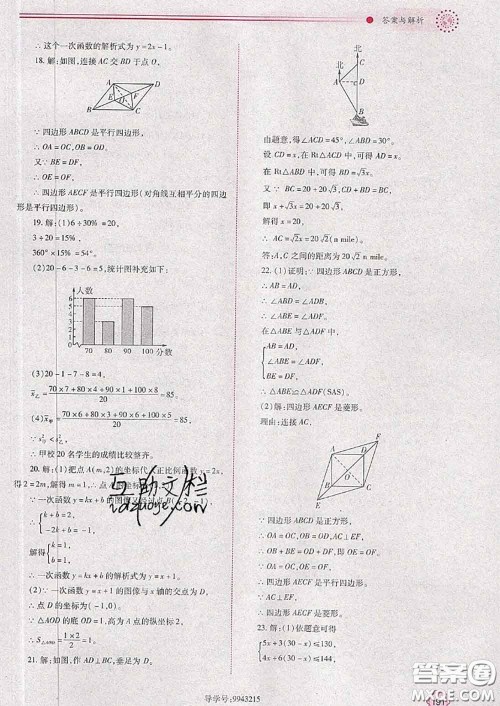 答案与解析
∴ 这个一次函数的解析式为 y=2x-1.
18. 解:如图,连接 AC 交 BD 于点 O,
A D
E F
O
B C
∵ 四边形 ABCD 是平行四边形,
∴ OA=OC,OB=OD.
又∵ BE=DF,
∴ OE=OF,
∴ 四边形 AECF 是平行四边形(对角线互相平分的四边
形是平行四边形).
19. 解:(1)6÷30%=20,
3÷20=15%,
360°×15%=54°.
(2)20-6-3-6=5,统计图补充如下:
人数
6
5
4
3
2
1
70 80 90 100 分数
(4)
20. 解:(1)把点 A(m,2)的坐标代入正比例函数 y=2x,
得 2=2m,解得 m=1,
∴ 甲校 20 名学生的成绩比较整齐.
k+b=2,
-2k+b=-1,
解得
k=1,
b=1,
∴ 一次函数 y=kx+b 的解析式为 y=x+1.
(2)∵ 一次函数 y=kx+b 的图像与 x 轴的交点为 D,
∴ 点 D 的坐标为(-1,0).
∵ △AOD 的底 OD=1,高为 A 点的纵坐标 2,
∴ S△AOD=1×2/2=1.
21. 解:如图,作 AD⊥BC,垂足为 D.
北
C
北
A D
B
由题意,得∠ACD=45°,∠ABD=30°.
设 CD=x,在 Rt△ACD 中,可得 AD=x.
在 Rt△ABD 中,可得 BD=√3x.
又∵ BC=20+20√3,CD+BD=BC,
即 x+√3x=20+20√3,
解得 x=20.
∴ AC=√2x=20√2(n mile).
答:A,C 之间的距离为 20√2 n mile.
22. (1)证明:∵ 四边形 ABCD 是正方形,
∴ AB=AD,
∴ ∠ABD=∠ADB,
∴ ∠ABE=∠ADF,
在△ABE 与△ADF 中,
AB=AD,
∠ABE=∠ADF,
BE=DF,
∴ △ABE≌△ADF(SAS).
(2)解:四边形 AECF 是菱形.
理由:连接 AC,
∵ 四边形 ABCD 是正方形,
∴ OA=OC,OB=OD,AC⊥EF,
∴ OB+BE=OD+DF,即 OE=OF.
∵ OA=OC,OE=OF,
∴ 四边形 AECF 是平行四边形.
∵ AC⊥EF,
∴ 四边形 AECF 是菱形.
23. 解:(1)依题意可得
5x+3(30-x)≤130,
4x+6(30-x)≤144,
互助文栏
导学号:9943215
191
答案圈
MXQE.COM